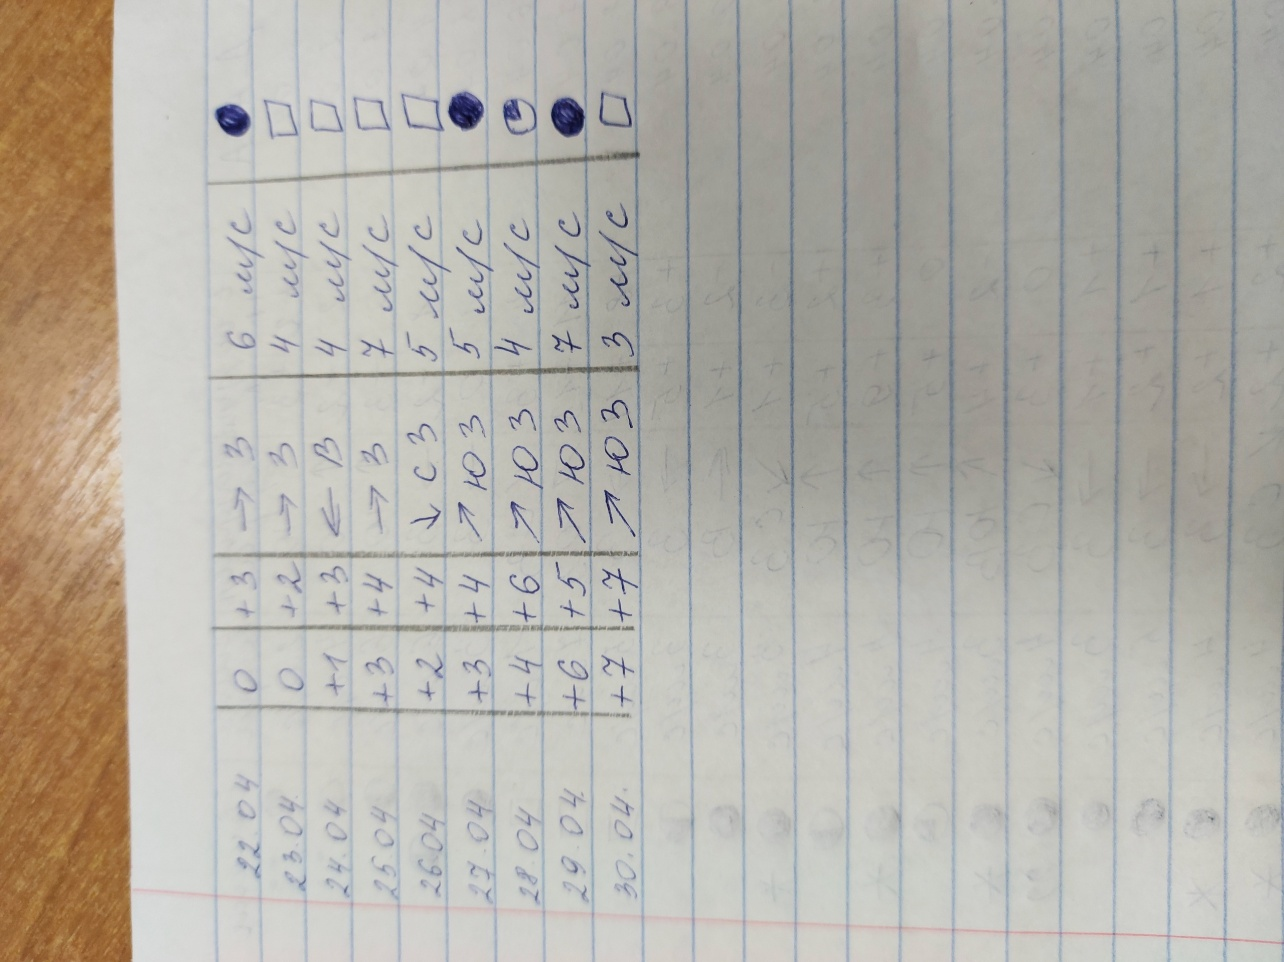 22.04 0 +3 → З 6 м/с ●
23.04. 0 +2 → З 4 м/с □
24.04 +1 +3 ← В 4 м/с □
25.04 +3 +4 → З 7 м/с □
26.04 +2 +4 ↘ СЗ 5 м/с □
27.04 +3 +4 ↗ ЮЗ 5 м/с ●
28.04 +4 +6 ↗ ЮЗ 4 м/с ◔
29.04. +6 +5 ↗ ЮЗ 7 м/с ●
30.04. +7 +7 ↗ ЮЗ 3 м/с □